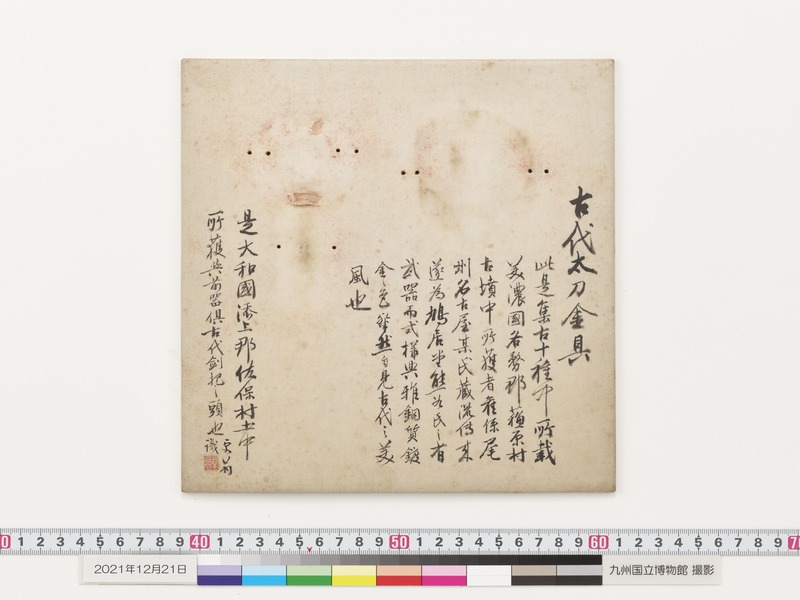 古代太刀金具
此是集古十種中所載
美濃國各務郡蘓原村
古墳中所獲者舊係尾
州名古屋某氏藏流傳
遂為鳩居堂熊谷氏之有
武器而式樣典雅銅質鍍
金色 然自見古代之美
風也
是大和國添上郡佐保村土中
所獲與前器俱古代剣把之頭也
識
0 1 2 3 4 5 6 7 8 9 40 1 2 3 4 5 6 7 8 9 50 1 2 3 4 5 6 7 8 9 60 1 2 3 4 5 6 7 8 9 70
2021年12月21日
九州国立博物館 撮影